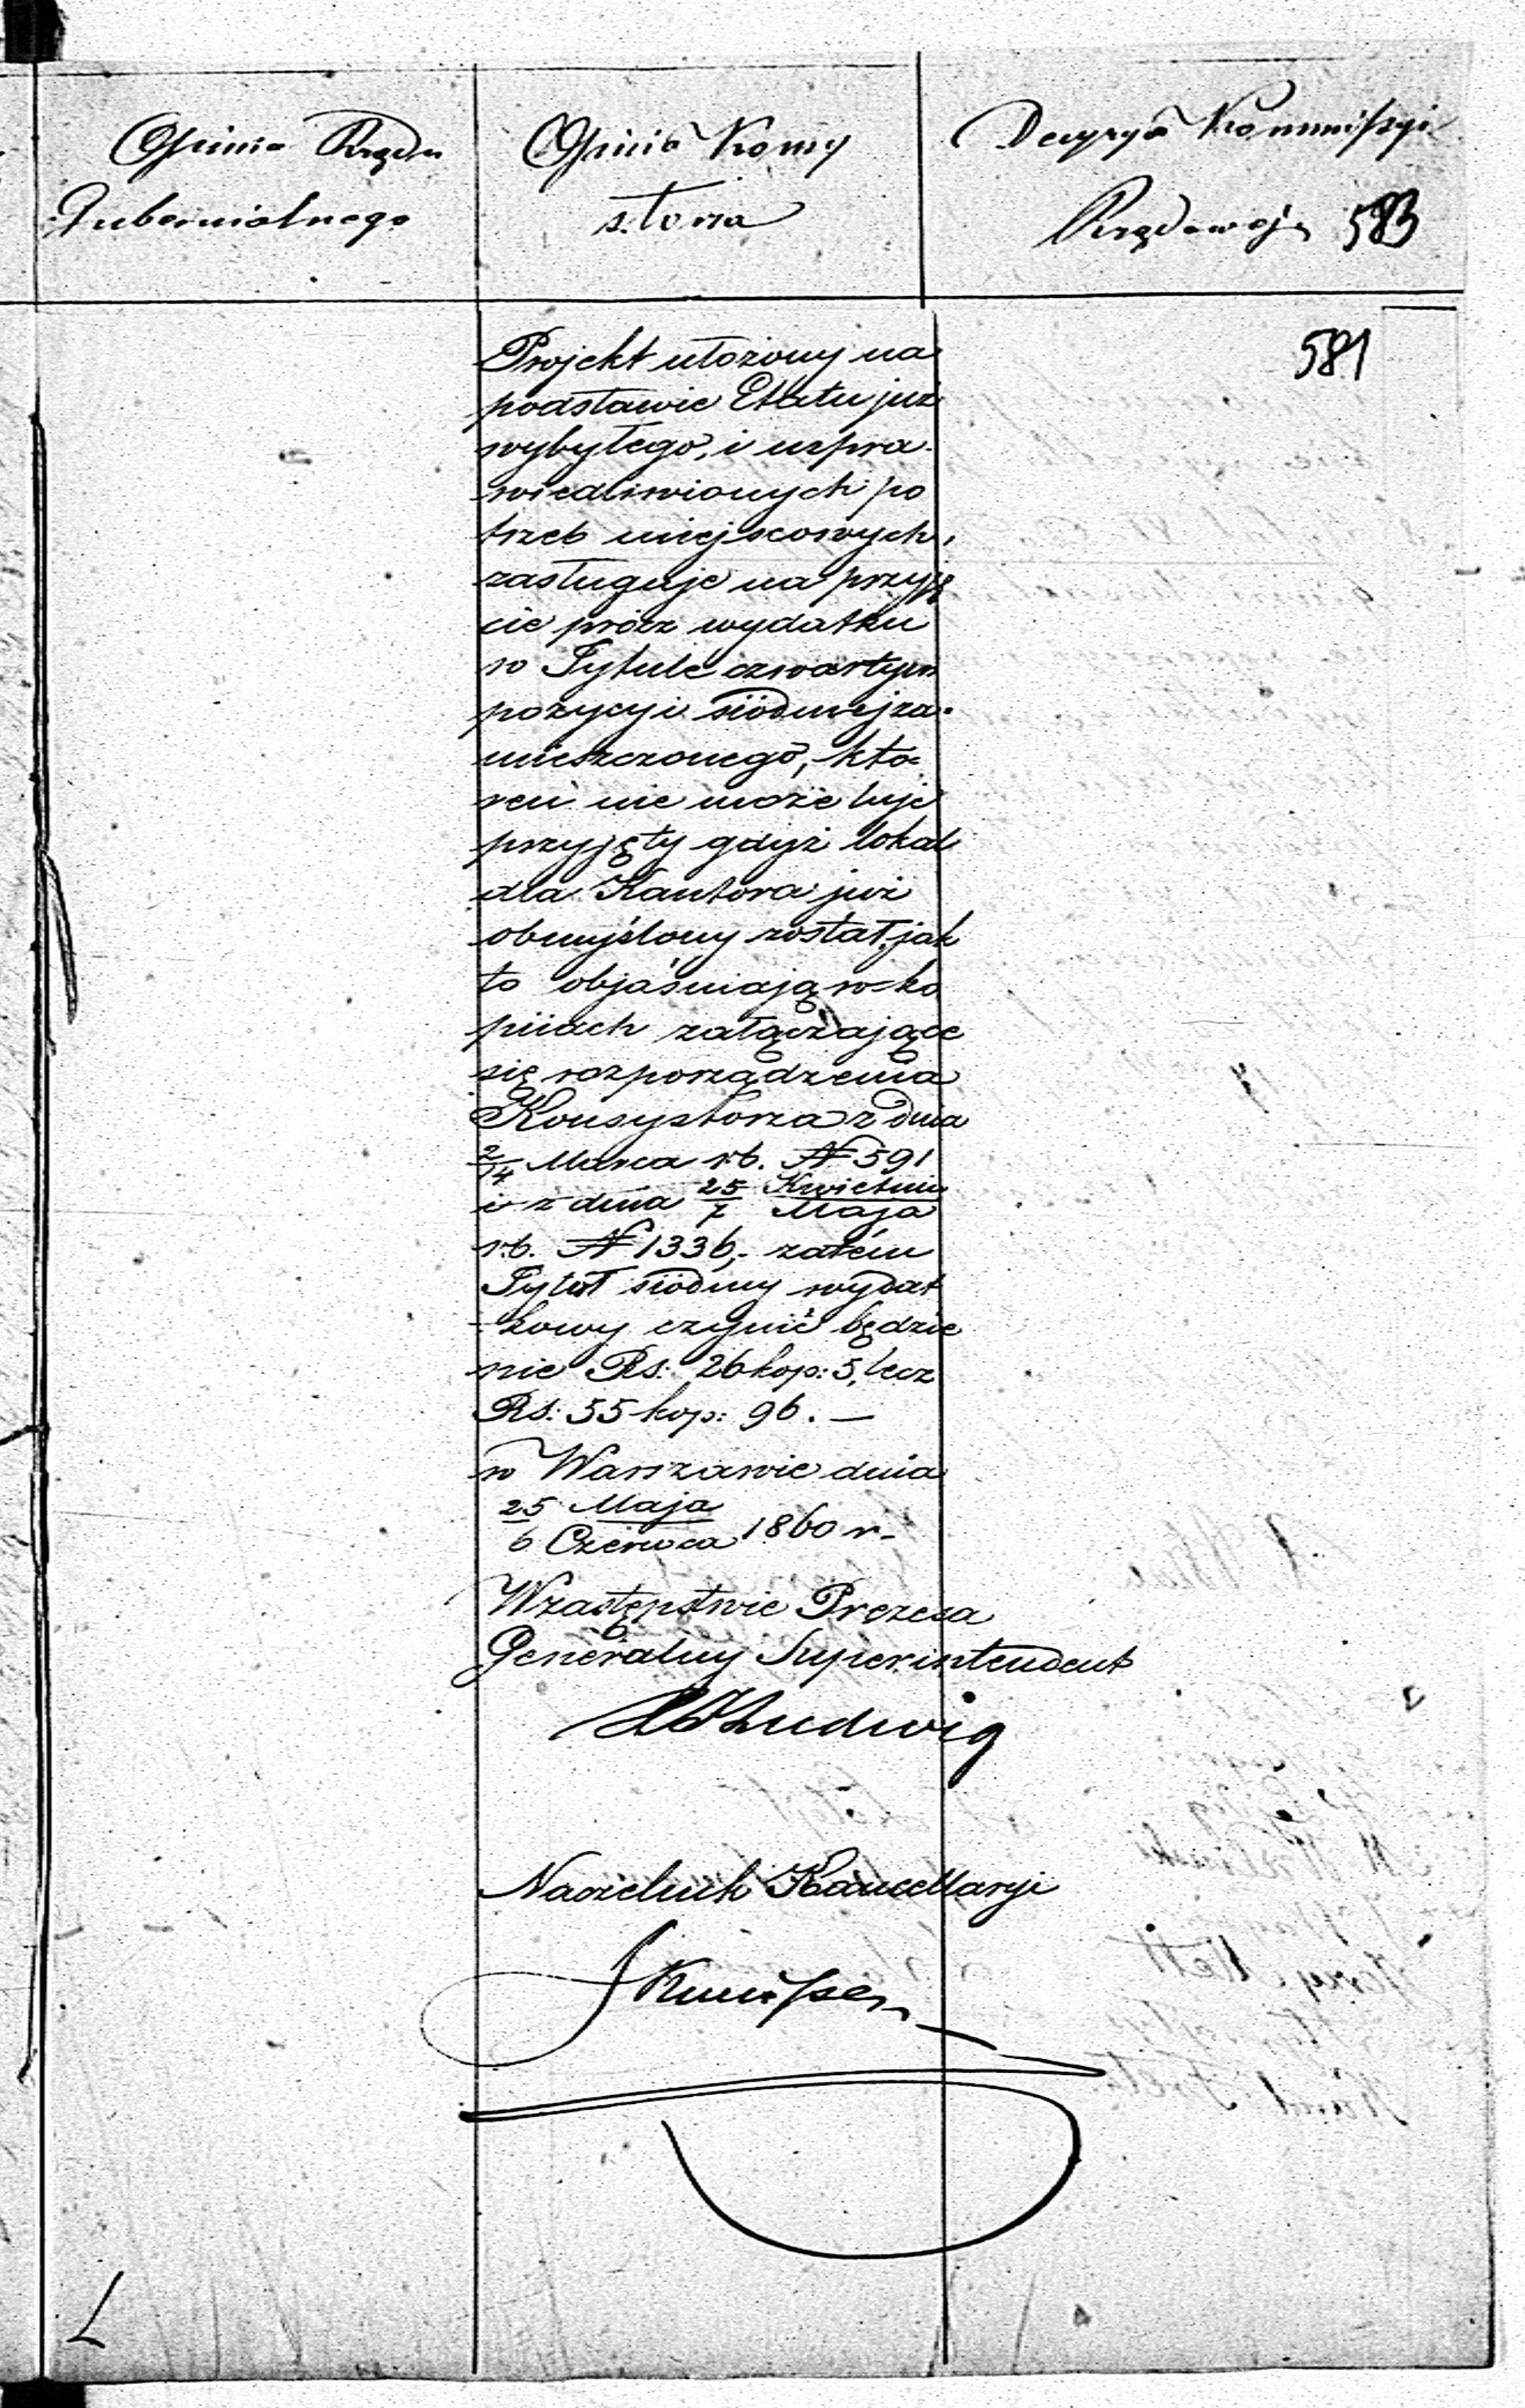 Opinia Rządu
Gubernialnego
Opinia Konsy
storza
Decyzya Kommissyi
Rządowej 583
581
Projekt ułożony na
podstawie Etatu już
wybyłego, i uspra-
wiedliwionych po
trzeb miejscowych,
zasługuje na przyję
cie prócz wydatku
w Tytule czwartym
pozycyi siódmej za-
mieszczonego, któ-
ren nie może być
przyjęty gdyż lokal
dla Kantora już
obmyślony został, jak
to objaśniają w ko
piiach załączające
się rozporządzenia
Konsystorza z dnia
2/14 Marca r.b. N 591
i z dnia 25/7 Kwietnia/Maja
r.b. N 1336,- zatém
Tytuł siódmy wydat
kowy czynić będzie
nie Rs: 26 kop: 5, lecz
Rs: 55 kop: 96. —
w Warszawie dnia
25 Maja
6 Czerwca 1860 r.
W zastępstwie Prezesa
Generalny Superintendent
Ludwig
Naczelnik Kancellaryi